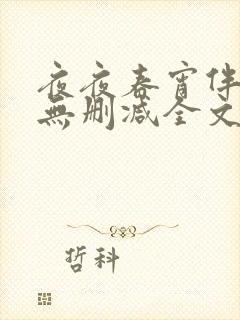 夜夜春宵伴
無删减全文
哲科